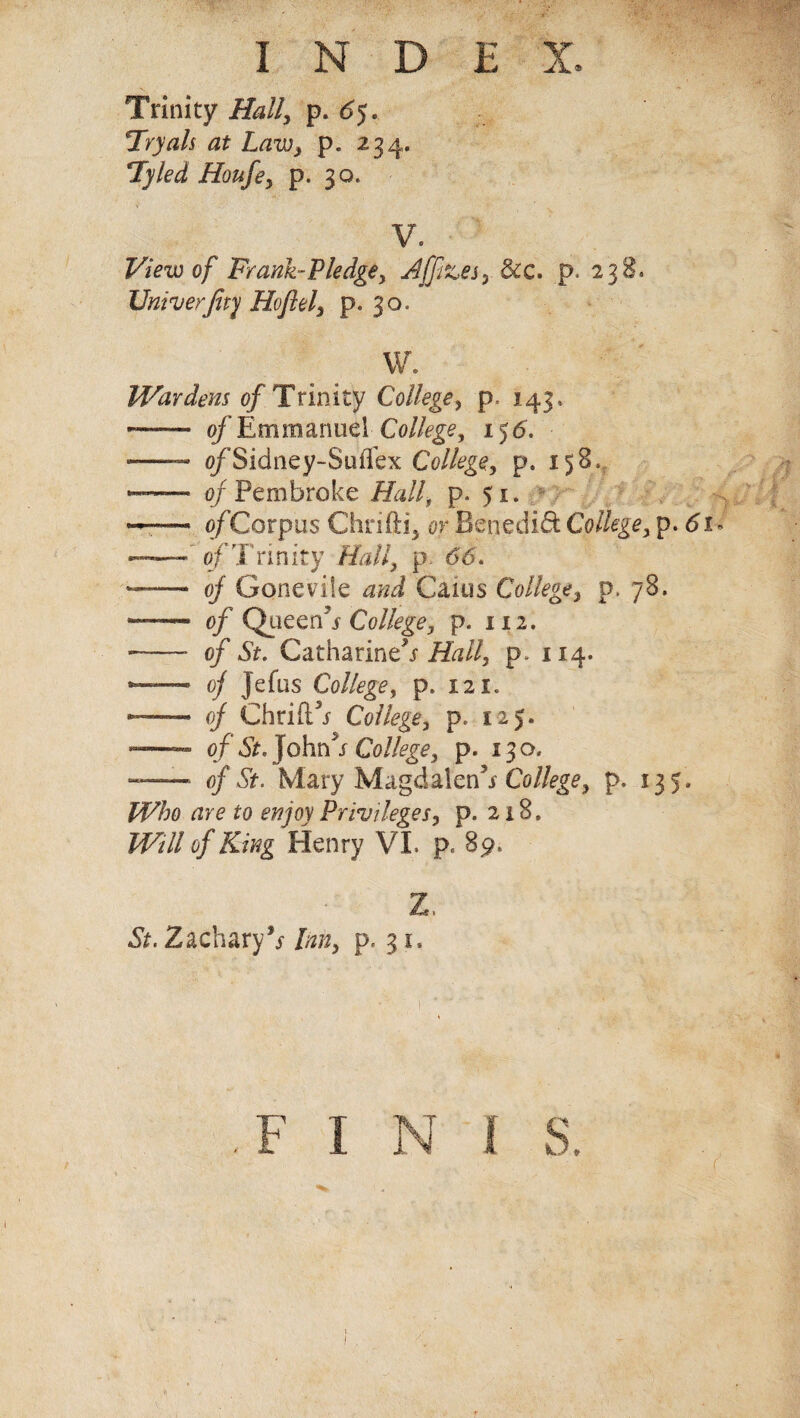 INDEX.
Trinity Hall, p. 65.
Tryals at Law, p. 234.
Tyled Houſe, p. 30.
V.
View of Frank-Pledge, Aſſizes, &c. p. 238.
Univerſity Hoſtel, p. 30.
W.
Wardens of Trinity College, p. 143.
—— of Emmanuel College, 156.
—— of Sidney-Suſſex College, p. 158.
—— of Pembroke Hall, p. 51.
—— of Corpus Chriſti, or Benedict College, p. 61.
—— of Trinity Hall, p. 66.
—— of Gonevile and Caius College, p. 78.
—— of Queen's College, p. 112.
—— of St. Catharine's Hall, p. 114.
—— of Jeſus College, p. 121.
—— of Chriſt's College, p. 125.
—— of St. John's College, p. 130.
—— of St. Mary Magdalen's College, p. 135.
Who are to enjoy Privileges, p. 218.
Will of King Henry VI. p. 89.
Z.
St. Zachary's Inn, p. 31.
FINIS.